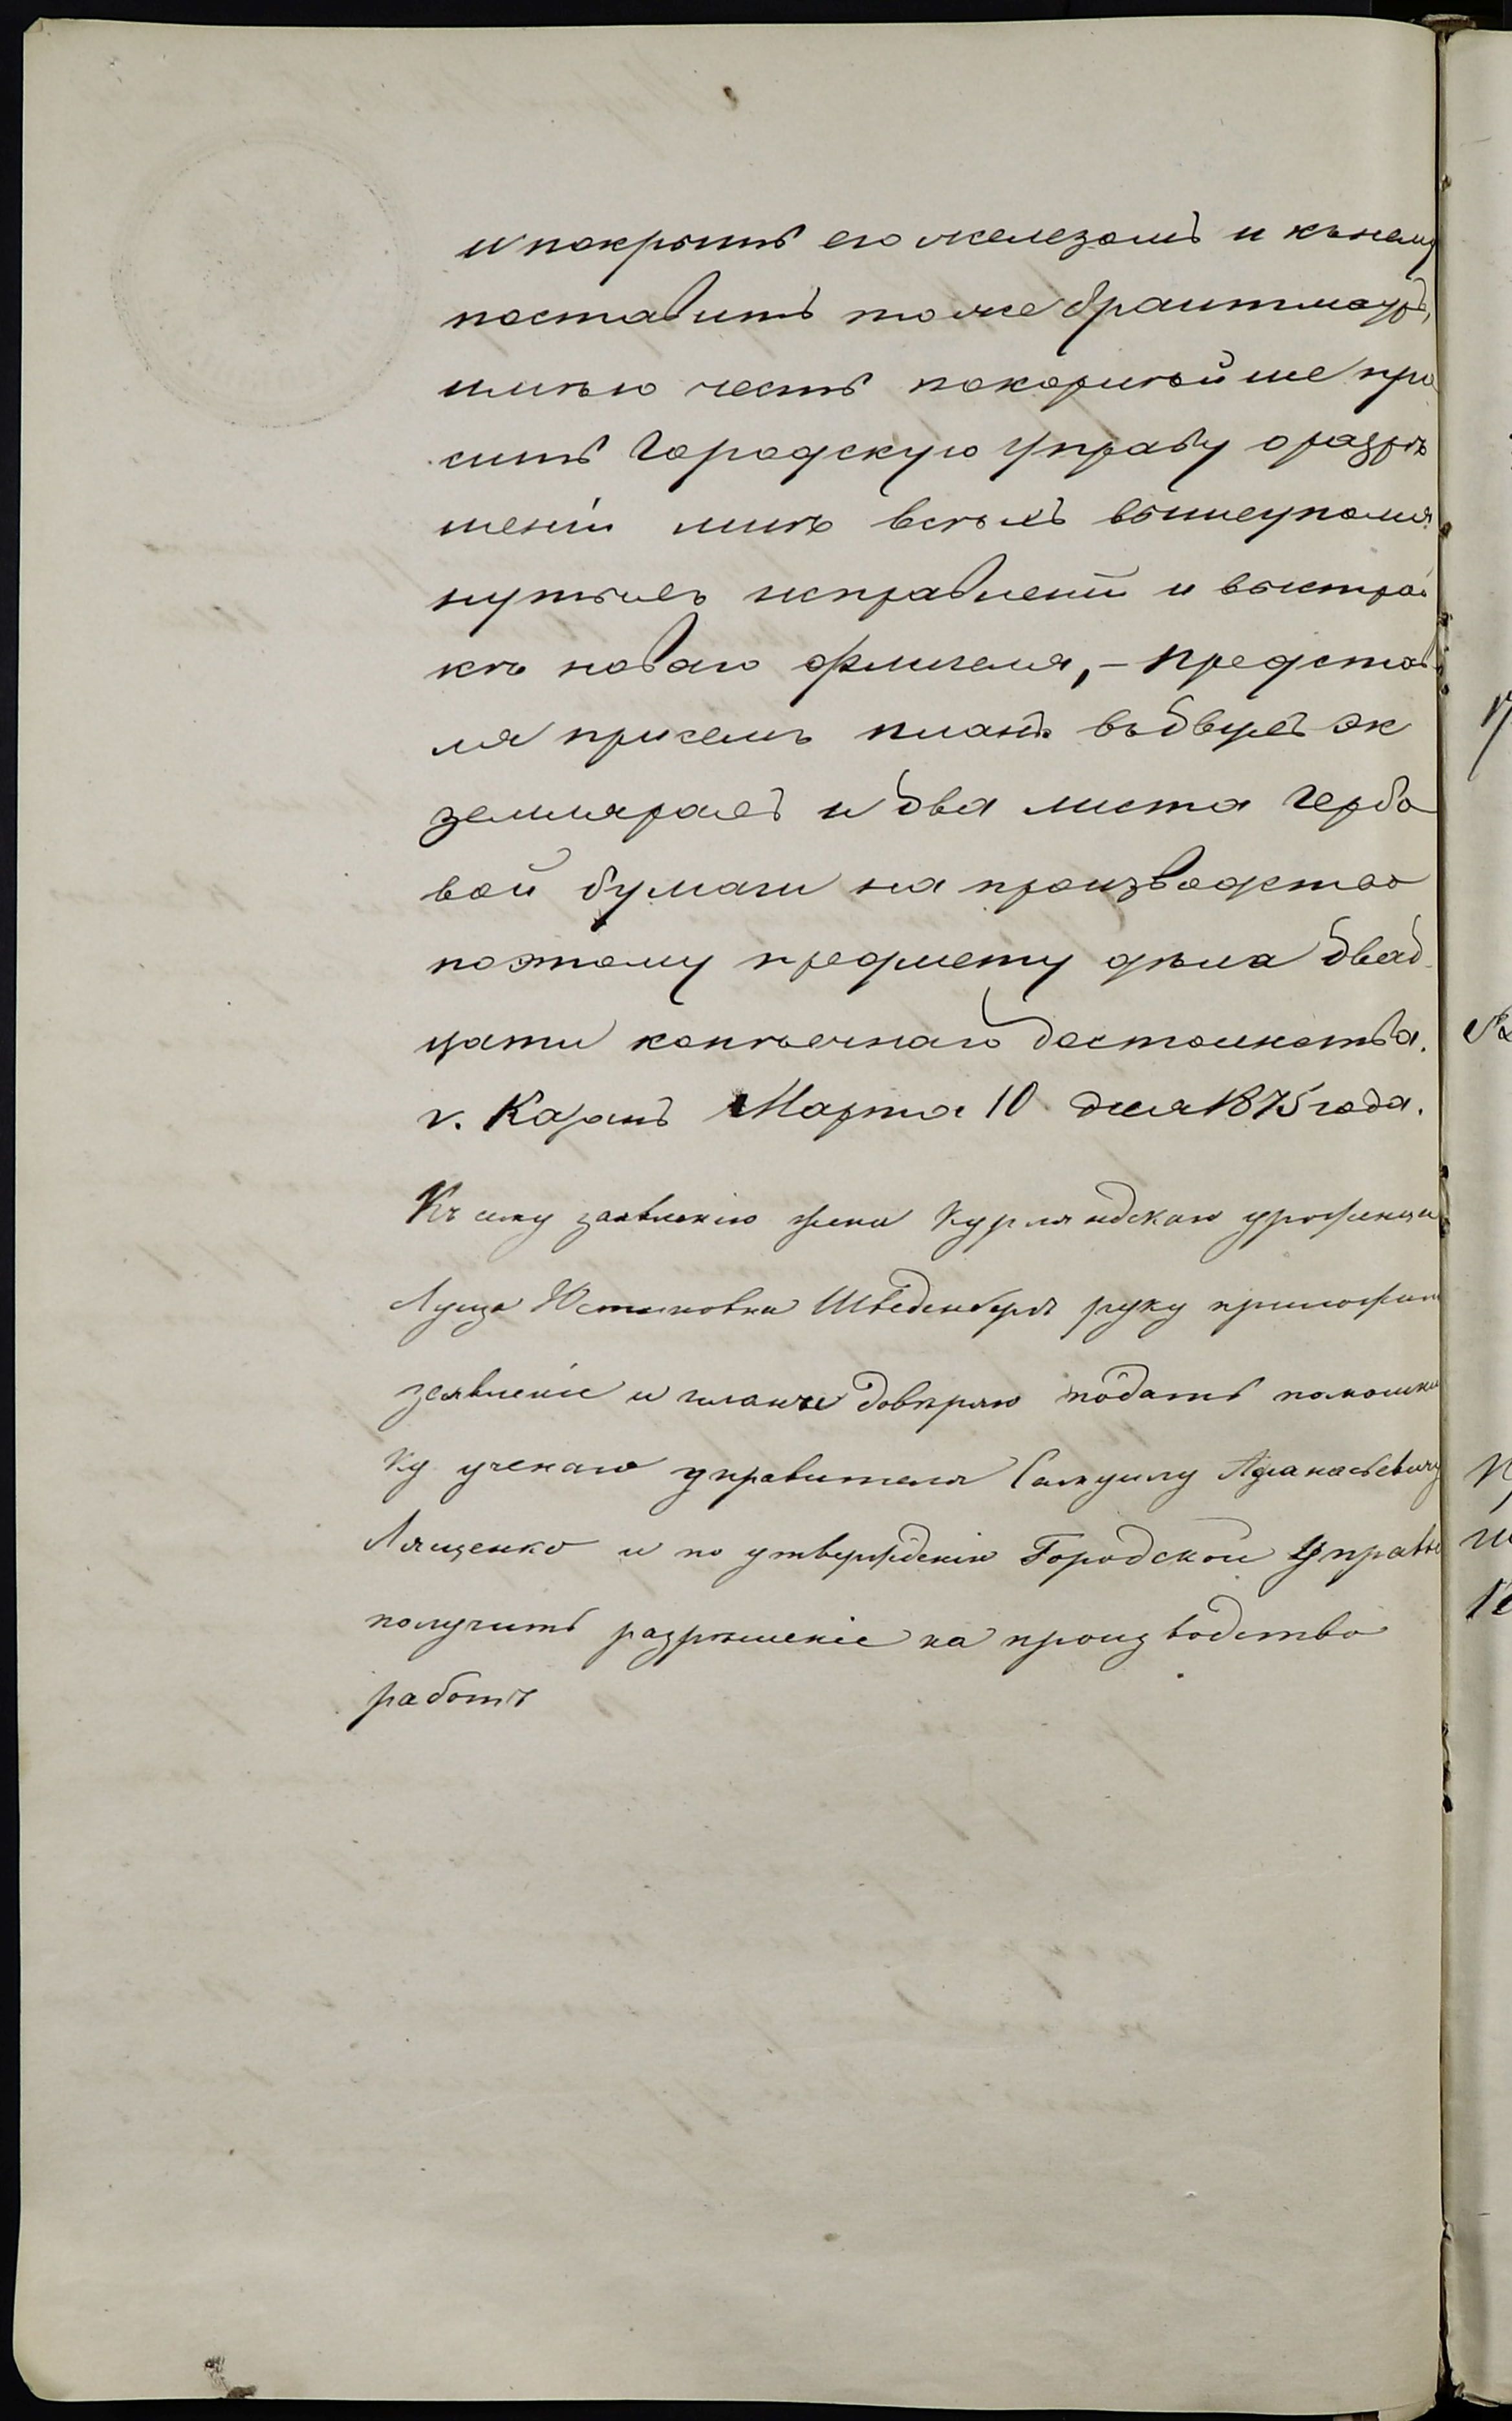 и покрыть его железомъ и къ нему
поставить тоже брантмауръ,
имѣю честь покорнѣйше про
сить Городскую Управу о разрѣ
шеніи мнѣ всѣхъ вышеупомя
нутыхъ исправленій и выстрой
кѣ новаго флигеля, - представ
ля при семъ планъ въ двухъ эк
земплярахъ и два листа гербо
вой бумаги на производство
по этому предмету дѣла двад
цати копѣечнаго достоинства.
г. Казань Марта 10 дня 1875 года.
Къ сему заявленію жена Курляндскаго урожен­ца
Луиза Юстиновна Шведенбергъ руку приложила
заявленіе и планы довѣряю подать помощни
ку ученаго управителя Самуилу Афанасьевичу
Лященко и по утвержденіи Городской Управы
получить разрѣшеніе на производство
работъ